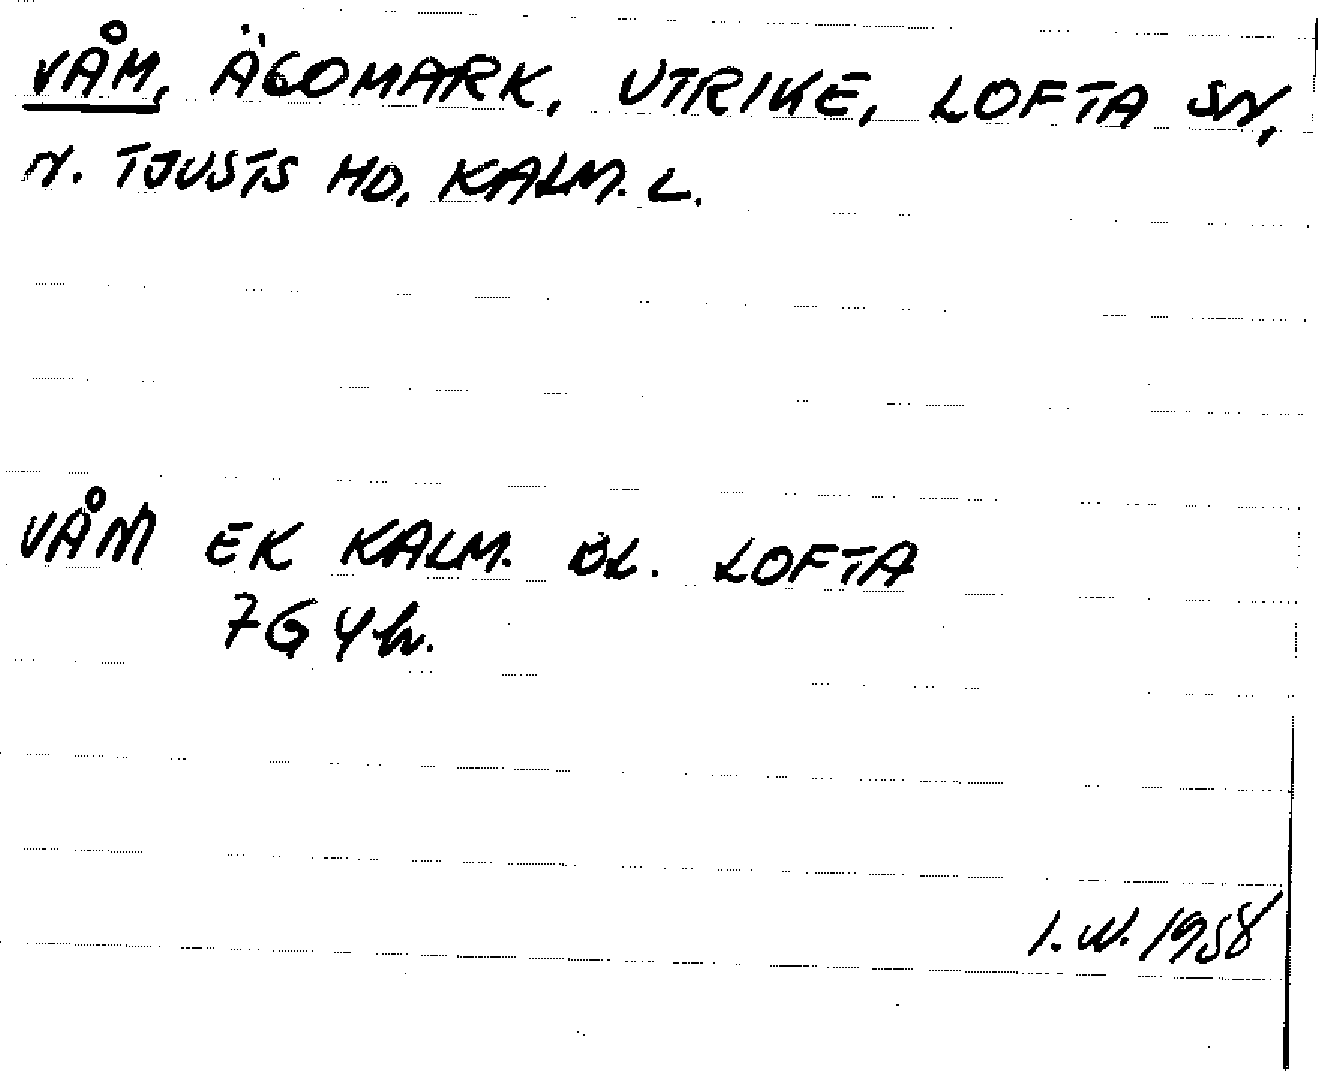 VÅM, ÄGOMARK, UTRIKE, LOFTA SN,
N. TJUSTS HD. KALM. L.
VÅM EK KALM. BL. LOFTA
7G 4h.
I. W. 1958